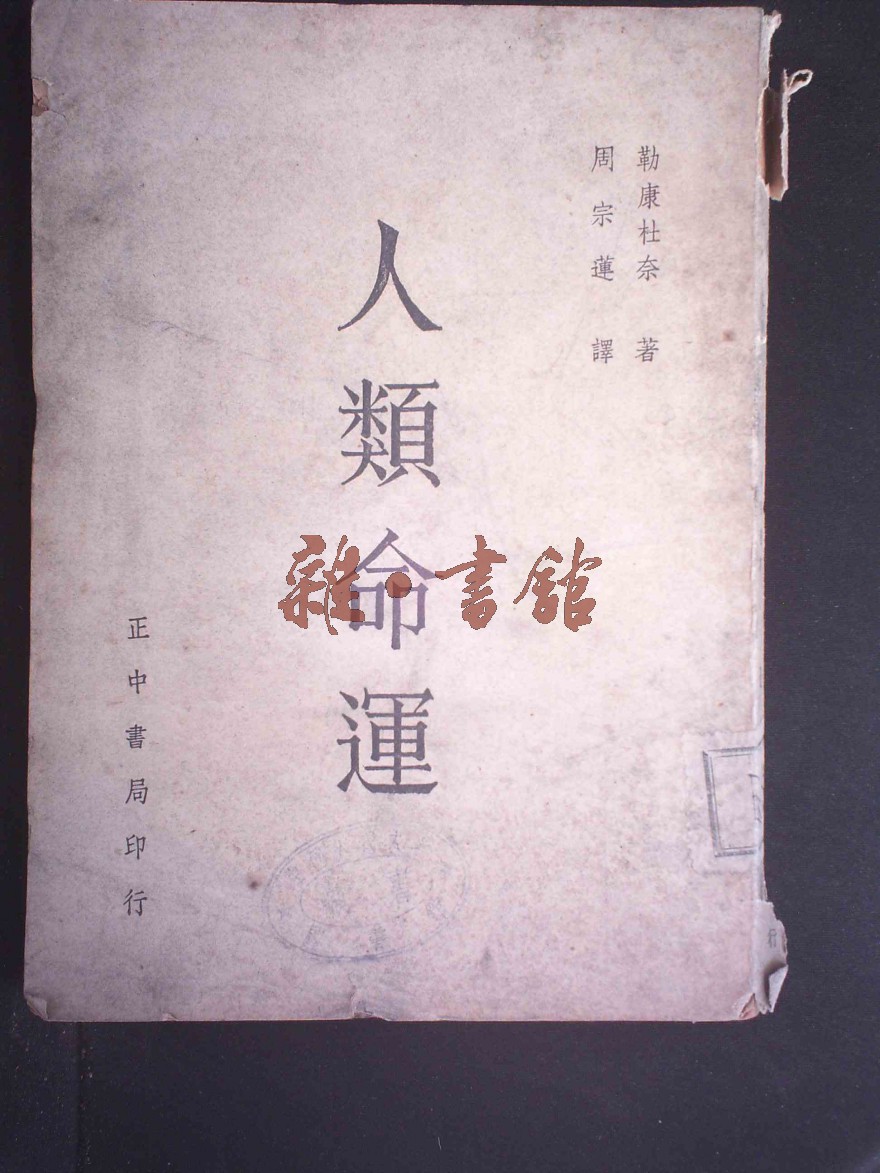 勒康杜奈 著
周宗蓮 譯
人類命運
正中書局印行
雜·書館